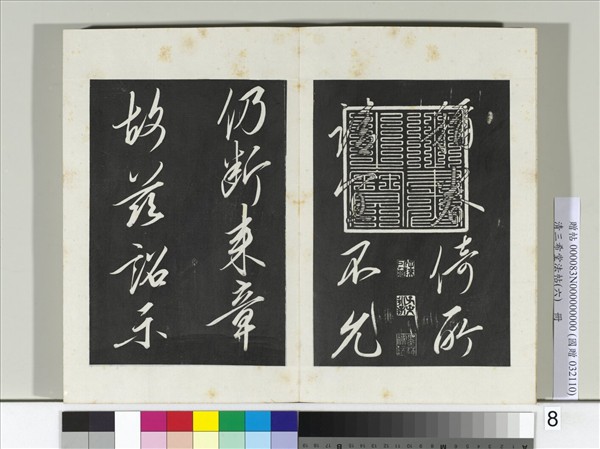 倚所
請宜不允
仍斷來章
故茲詔示
贈帖 000083N000000000 (國贈 032110)
清三希堂法帖(六) 冊
8